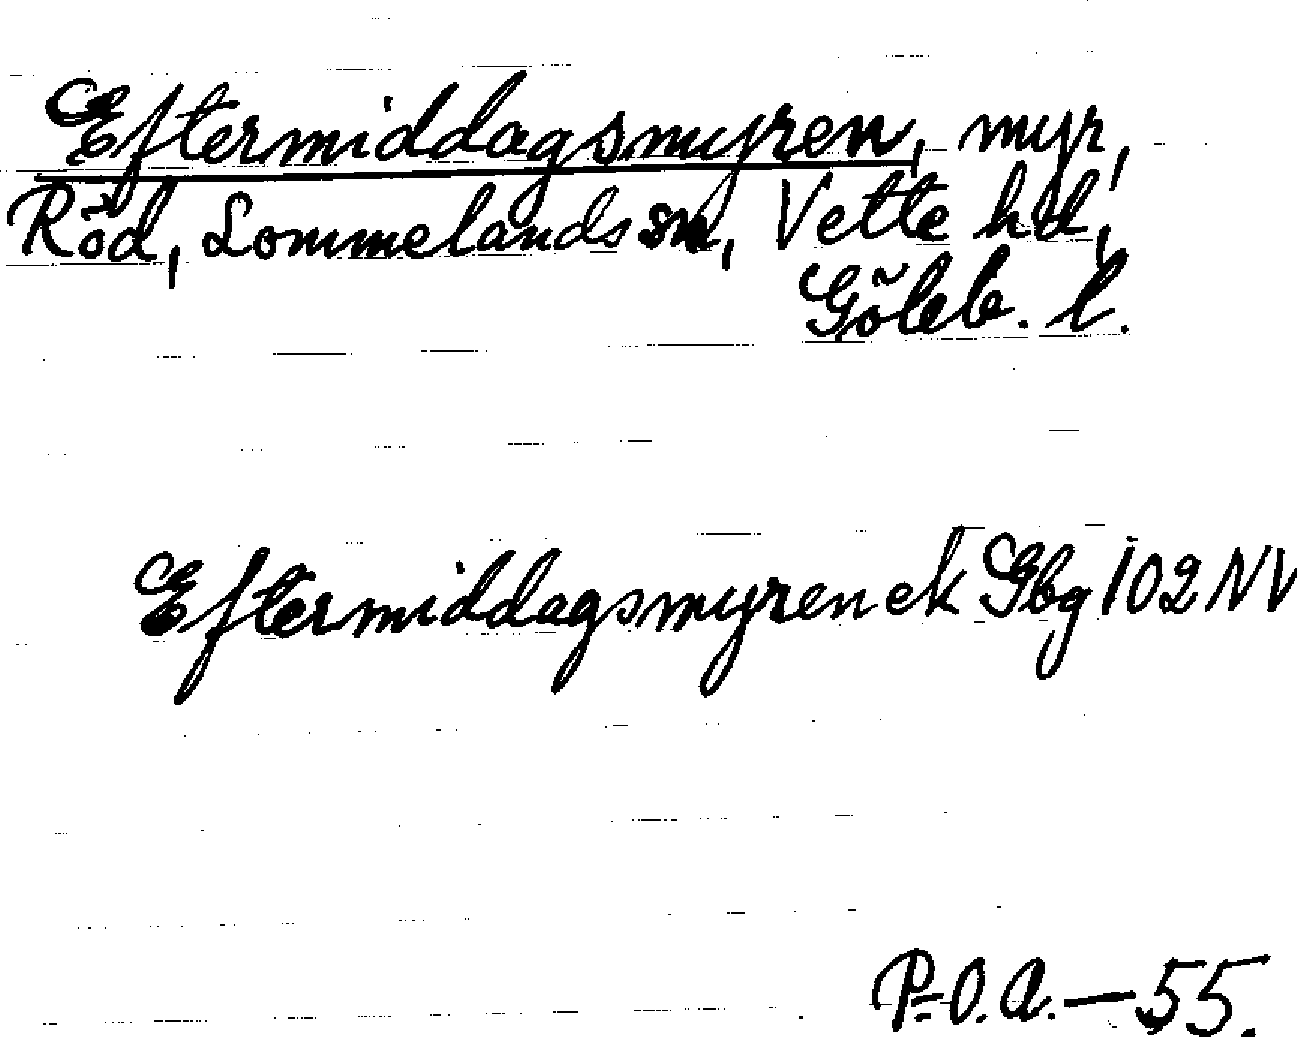 Eftermiddagsmyren, myr,
Röd, Lommelands sn, Vette hd,
Göteb. l.
Eftermiddagsmyren ek Gbg 102 NV
P.-O. A. — 55.